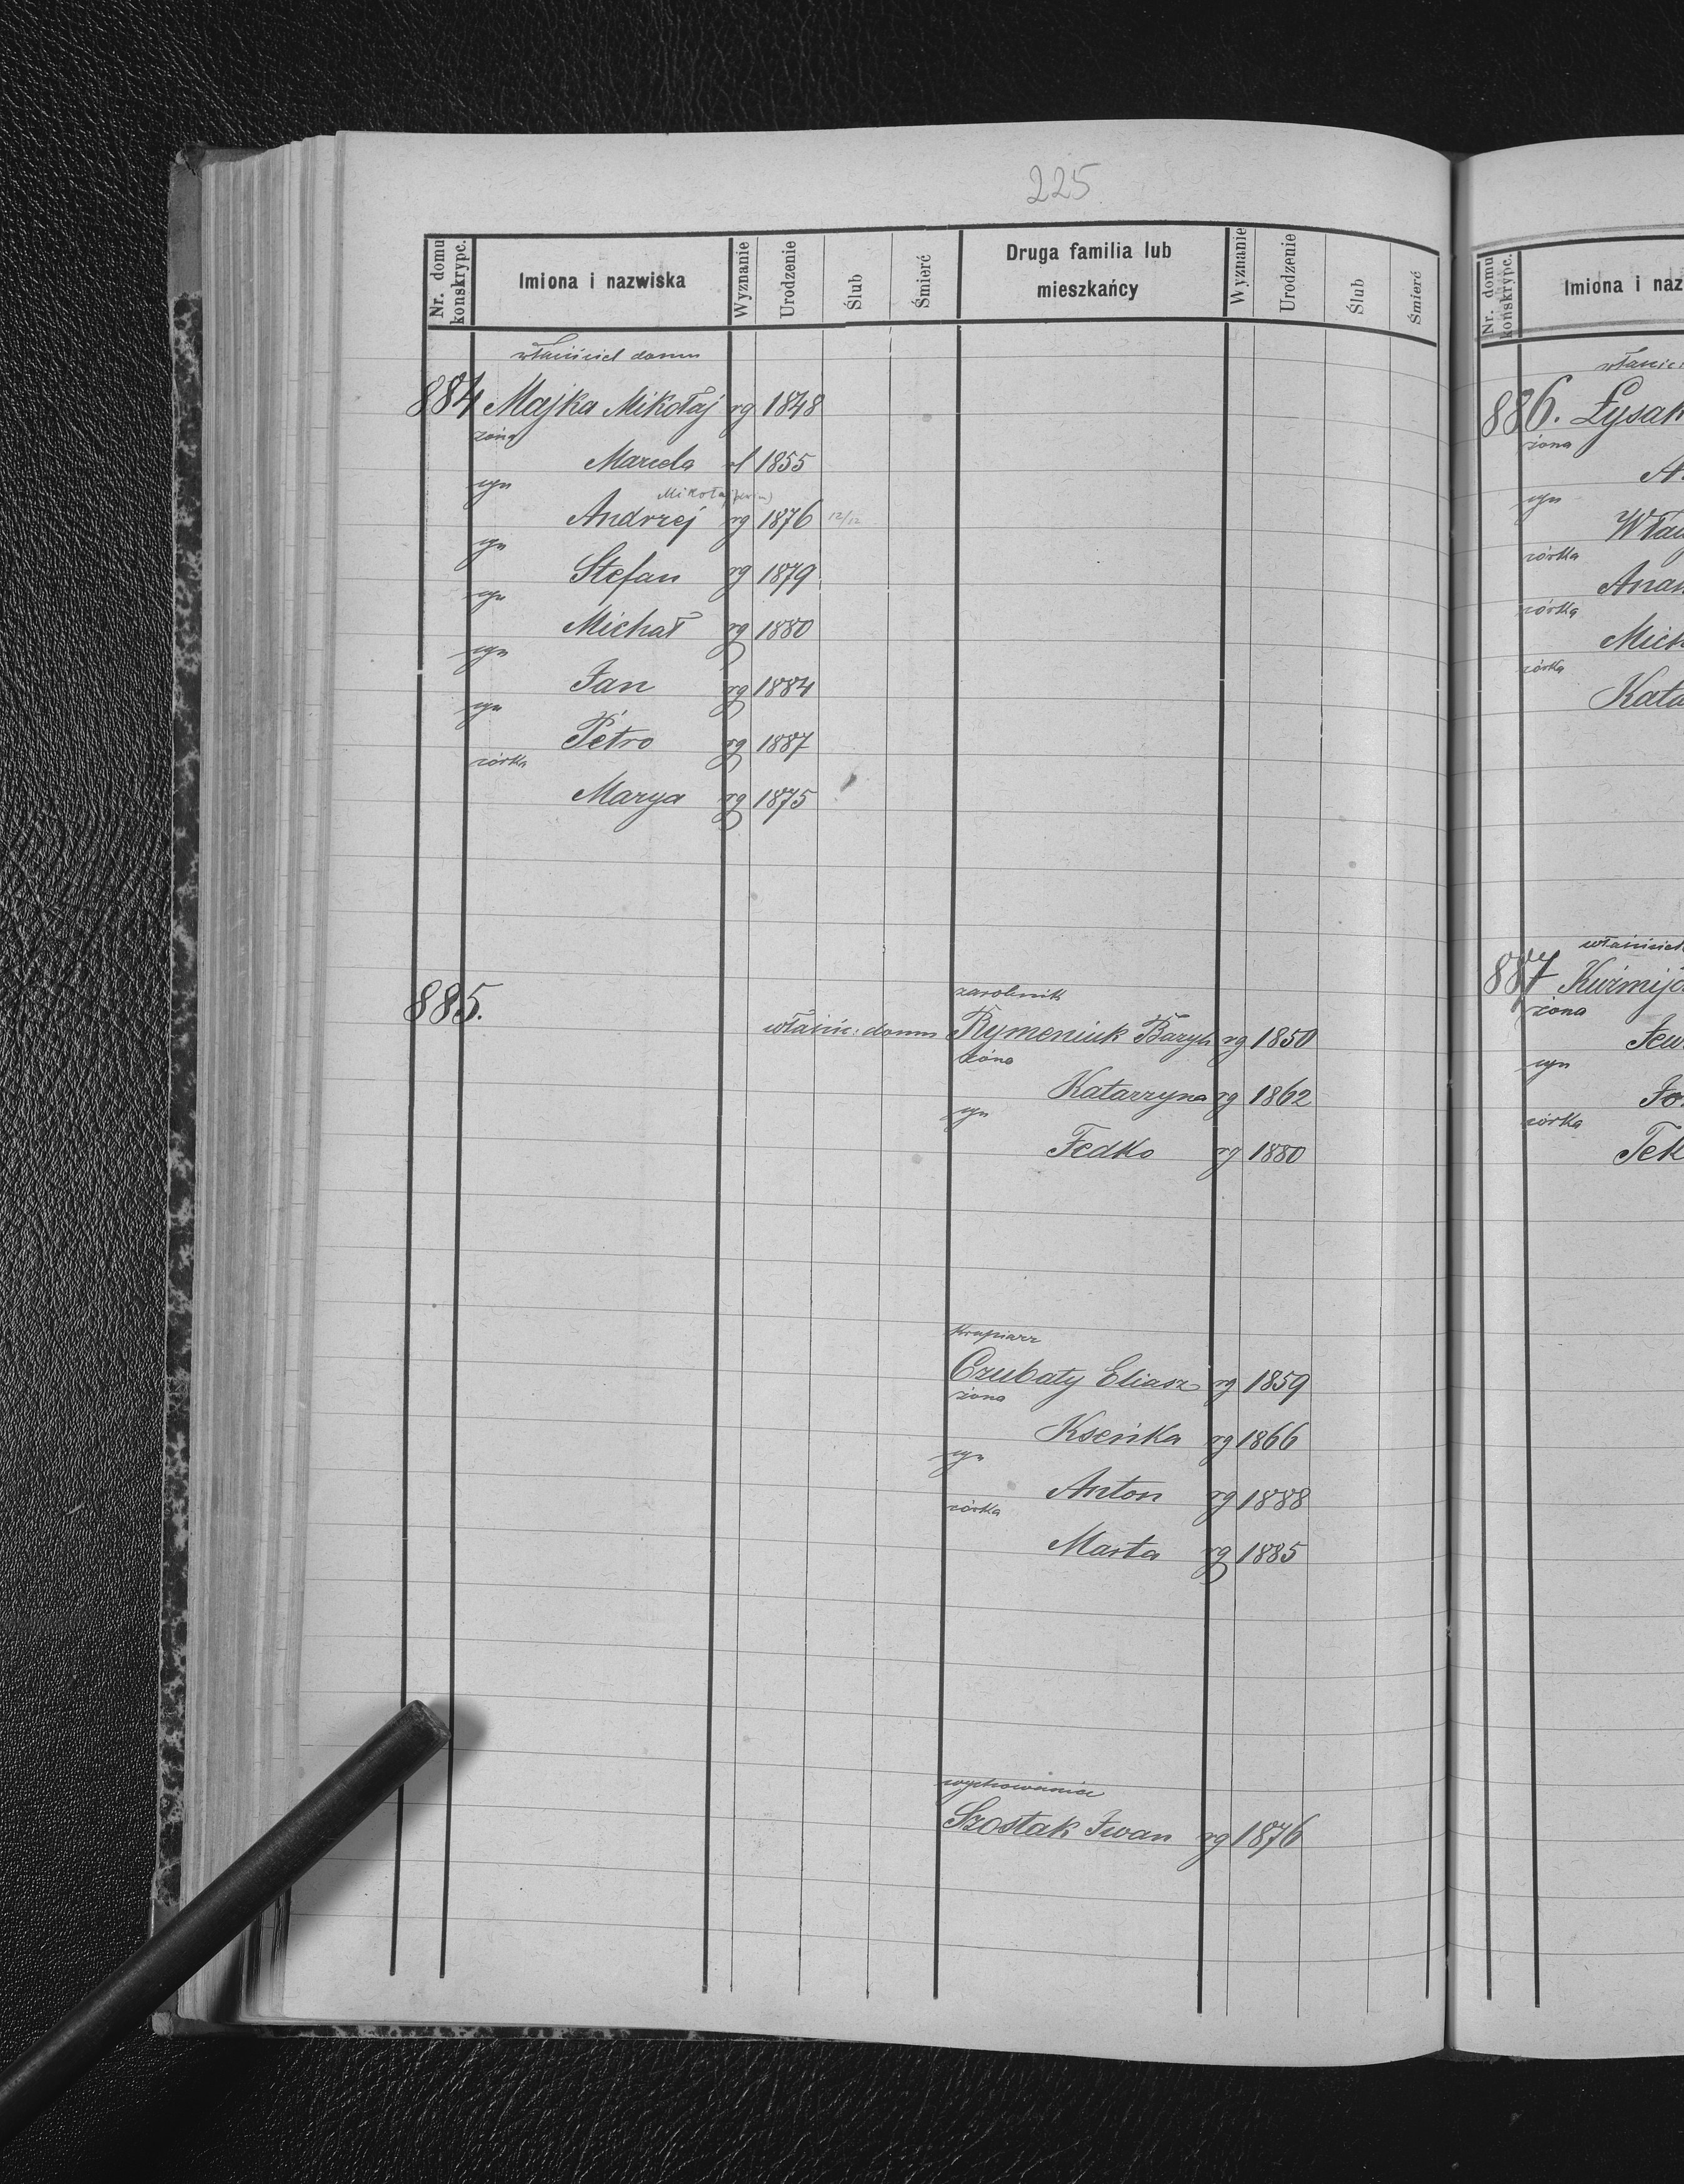 225
Nr. domu konskrypc.
Imiona i nazwiska
Wyznanie
Urodzenie
Ślub
Śmierć
Druga familia lub mieszkańcy
Wyznanie
Urodzenie
Ślub
Śmierć
właściciel domu
884 Majka Mikołaj rg 1848
żona
Marcela rl 1855
syn
Mikołaj
Andrzej rg 1876 12/12
syn
Stefan rg 1879
syn
Michał rg 1880
syn
Jan rg 1884
syn
Petro rg 1887
córka
Marya rg 1875
885.
zarobnik
właśic: domu Rymeniuk Bazyli rg 1850
żona
Katarzyna rg 1862
syn
Fedko rg 1880
krupiarz
Czubaty Eliasz rg 1859
żona
Kseńka rg 1866
syn
Anton rg 1888
córka
Marta rg 1885
wychowaniec
Szostak Iwan rg 1876
Nr. domu konskrypc.
Imiona i naz
właści
886. Łysak
żona
A
syn
Wła
córka
córka
Mich
córka
Kata
właściciel
887
żona
syn
córka
Tek